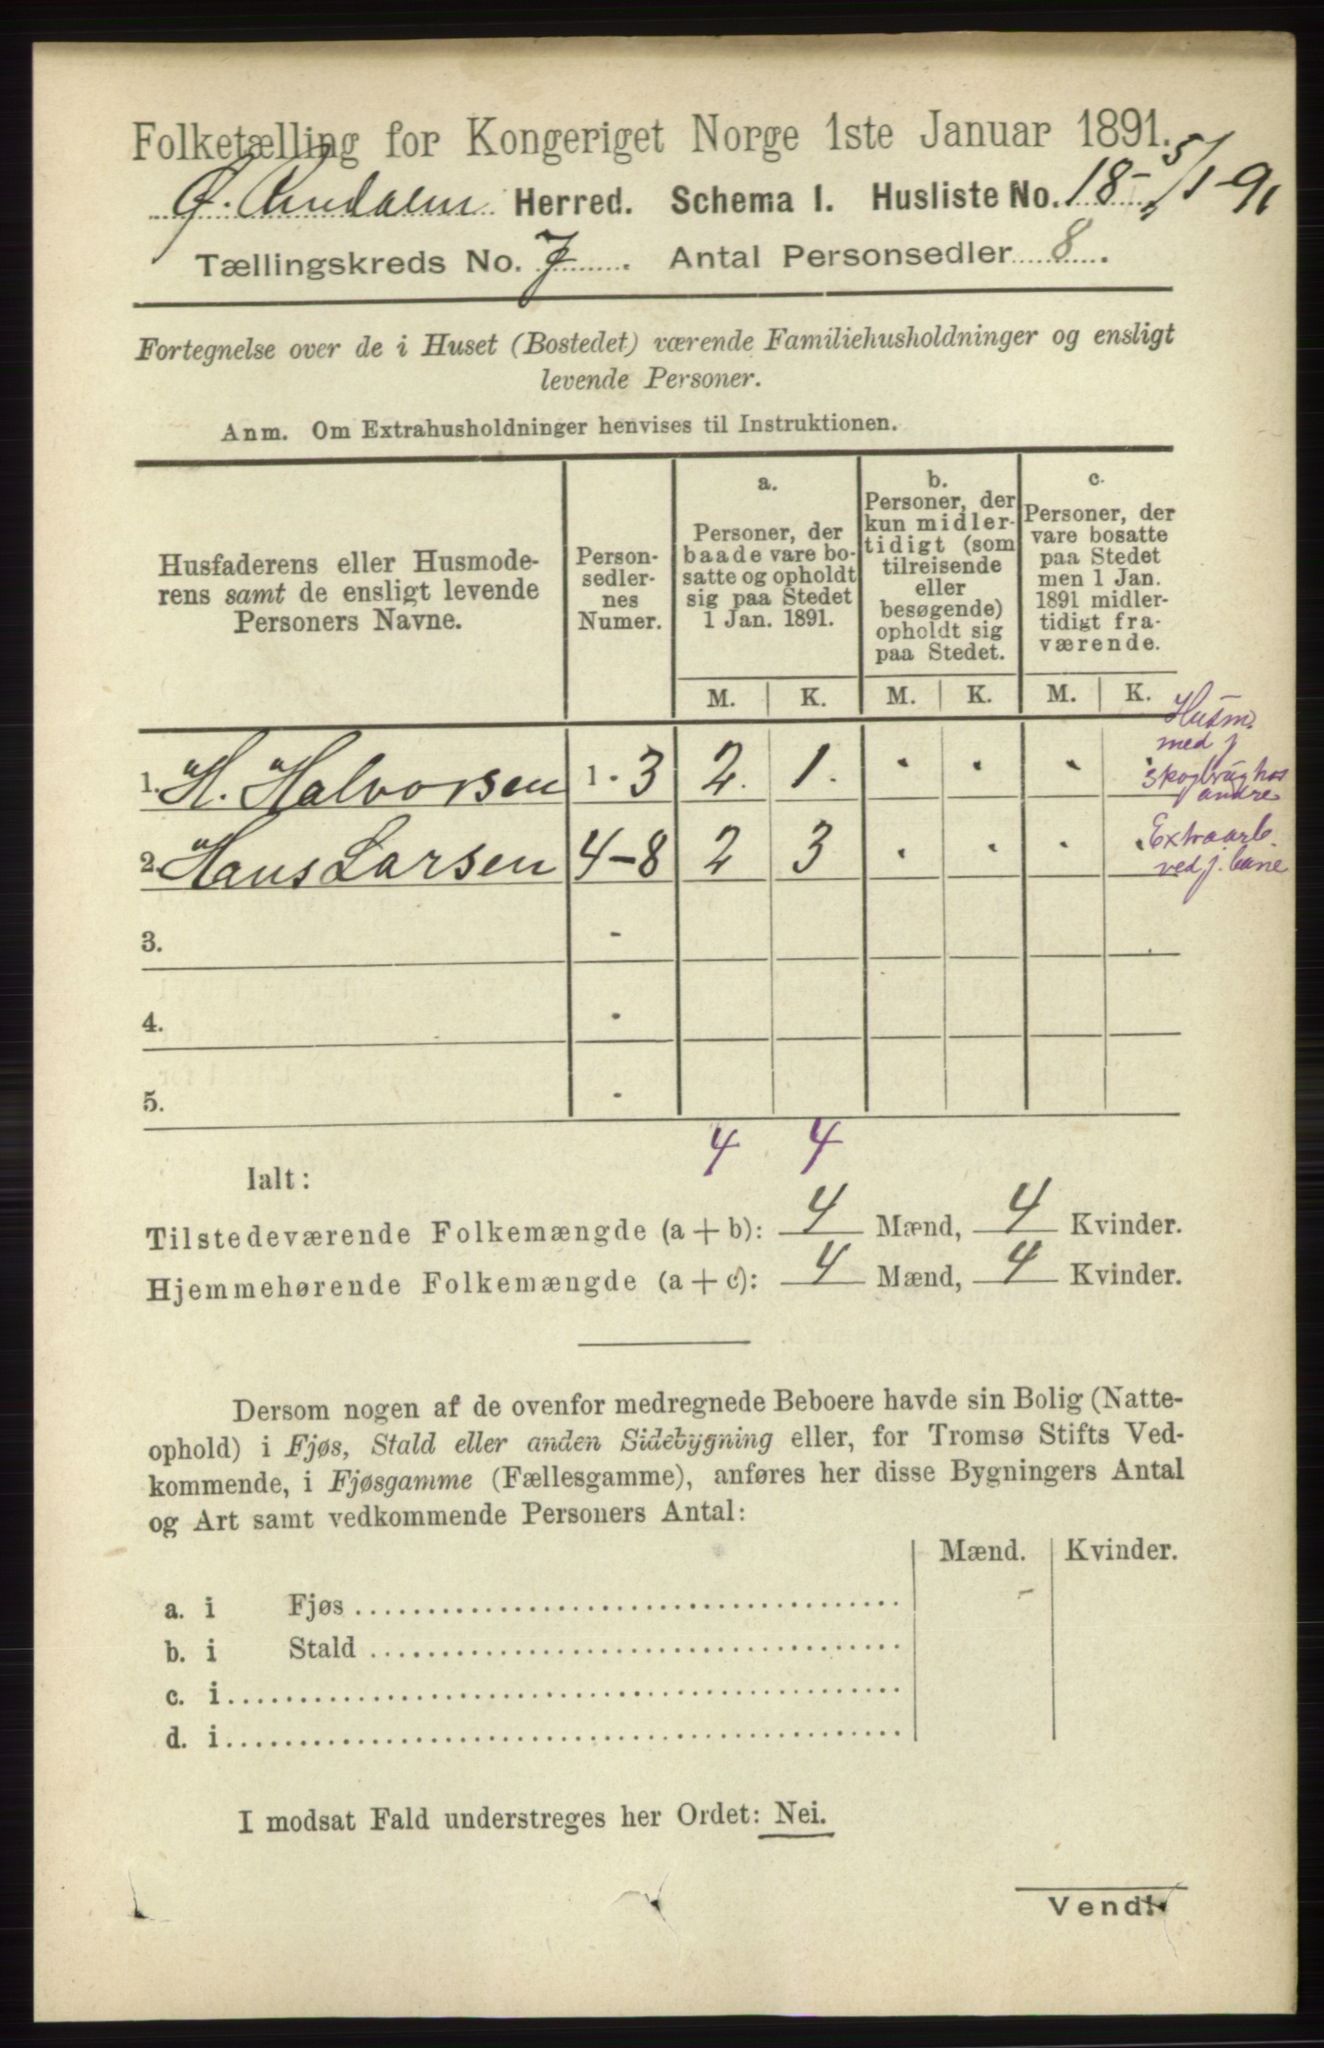 Folketælling for Kongeriget Norge 1ste Januar 1891.
Herred. Schema 1. Husliste No. 18 - 5/1-91
Tællingskreds No. 7. Antal Personsedler 8.
Fortegnelse over de i Huset (Bostedet) værende Familiehusholdninger og ensligt
levende Personer.
Anm. Om Extrahusholdninger henvises til Instruktionen.
Husfaderens eller Husmode-
rens samt de ensligt levende
Personers Navne.
Person-
sedler-
nes
Numer.
a.
Personer, der
baade vare bo-
satte og opholdt
sig paa Stedet
1 Jan. 1891.
b.
Personer, der
kun midler-
tidigt (som
tilreisende
eller
besøgende)
opholdt sig
paa Stedet.
c.
Personer, der
vare bosatte
paa Stedet
men 1 Jan.
1891 midler-
tidigt fra-
værende.
M. K. M. K. M. K.
Husm.
med j
skogbrug hos
andre
1. H. Halvorsen 1 - 3 2. 1.
2. Hans Larsen 4-8 2 3
Extraarb.
ved j. bane
3. -
4. -
5. -
4 4
Ialt:
Tilstedeværende Folkemængde (a + b): 4 Mænd, 4 Kvinder.
Hjemmehørende Folkemængde (a + c): 4 Mænd, 4 Kvinder.
Dersom nogen af de ovenfor medregnede Beboere havde sin Bolig (Natte-
ophold) i Fjøs, Stald eller anden Sidebygning eller, for Tromsø Stifts Ved-
kommende, i Fjøsgamme (Fællesgamme), anføres her disse Bygningers Antal
og Art samt vedkommende Personers Antal:
Mænd. Kvinder.
a. i Fjøs
b. i Stald
c. i
d. i
I modsat Fald understreges her Ordet: Nei.
Vend!